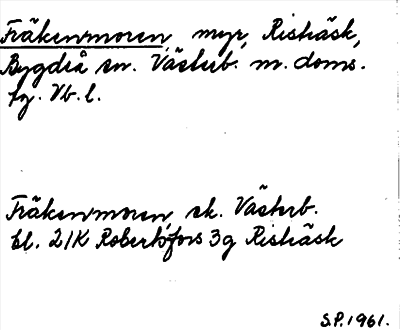 Fräkenmoren myr, Risträsk,
Bygdeå sn. Västerb. m. doms.
fg. Vb. l.
Fräkenmoren, sk. Västerb.
bl. 21K Robertsfors 3g Risträsk
S.P. 1961.